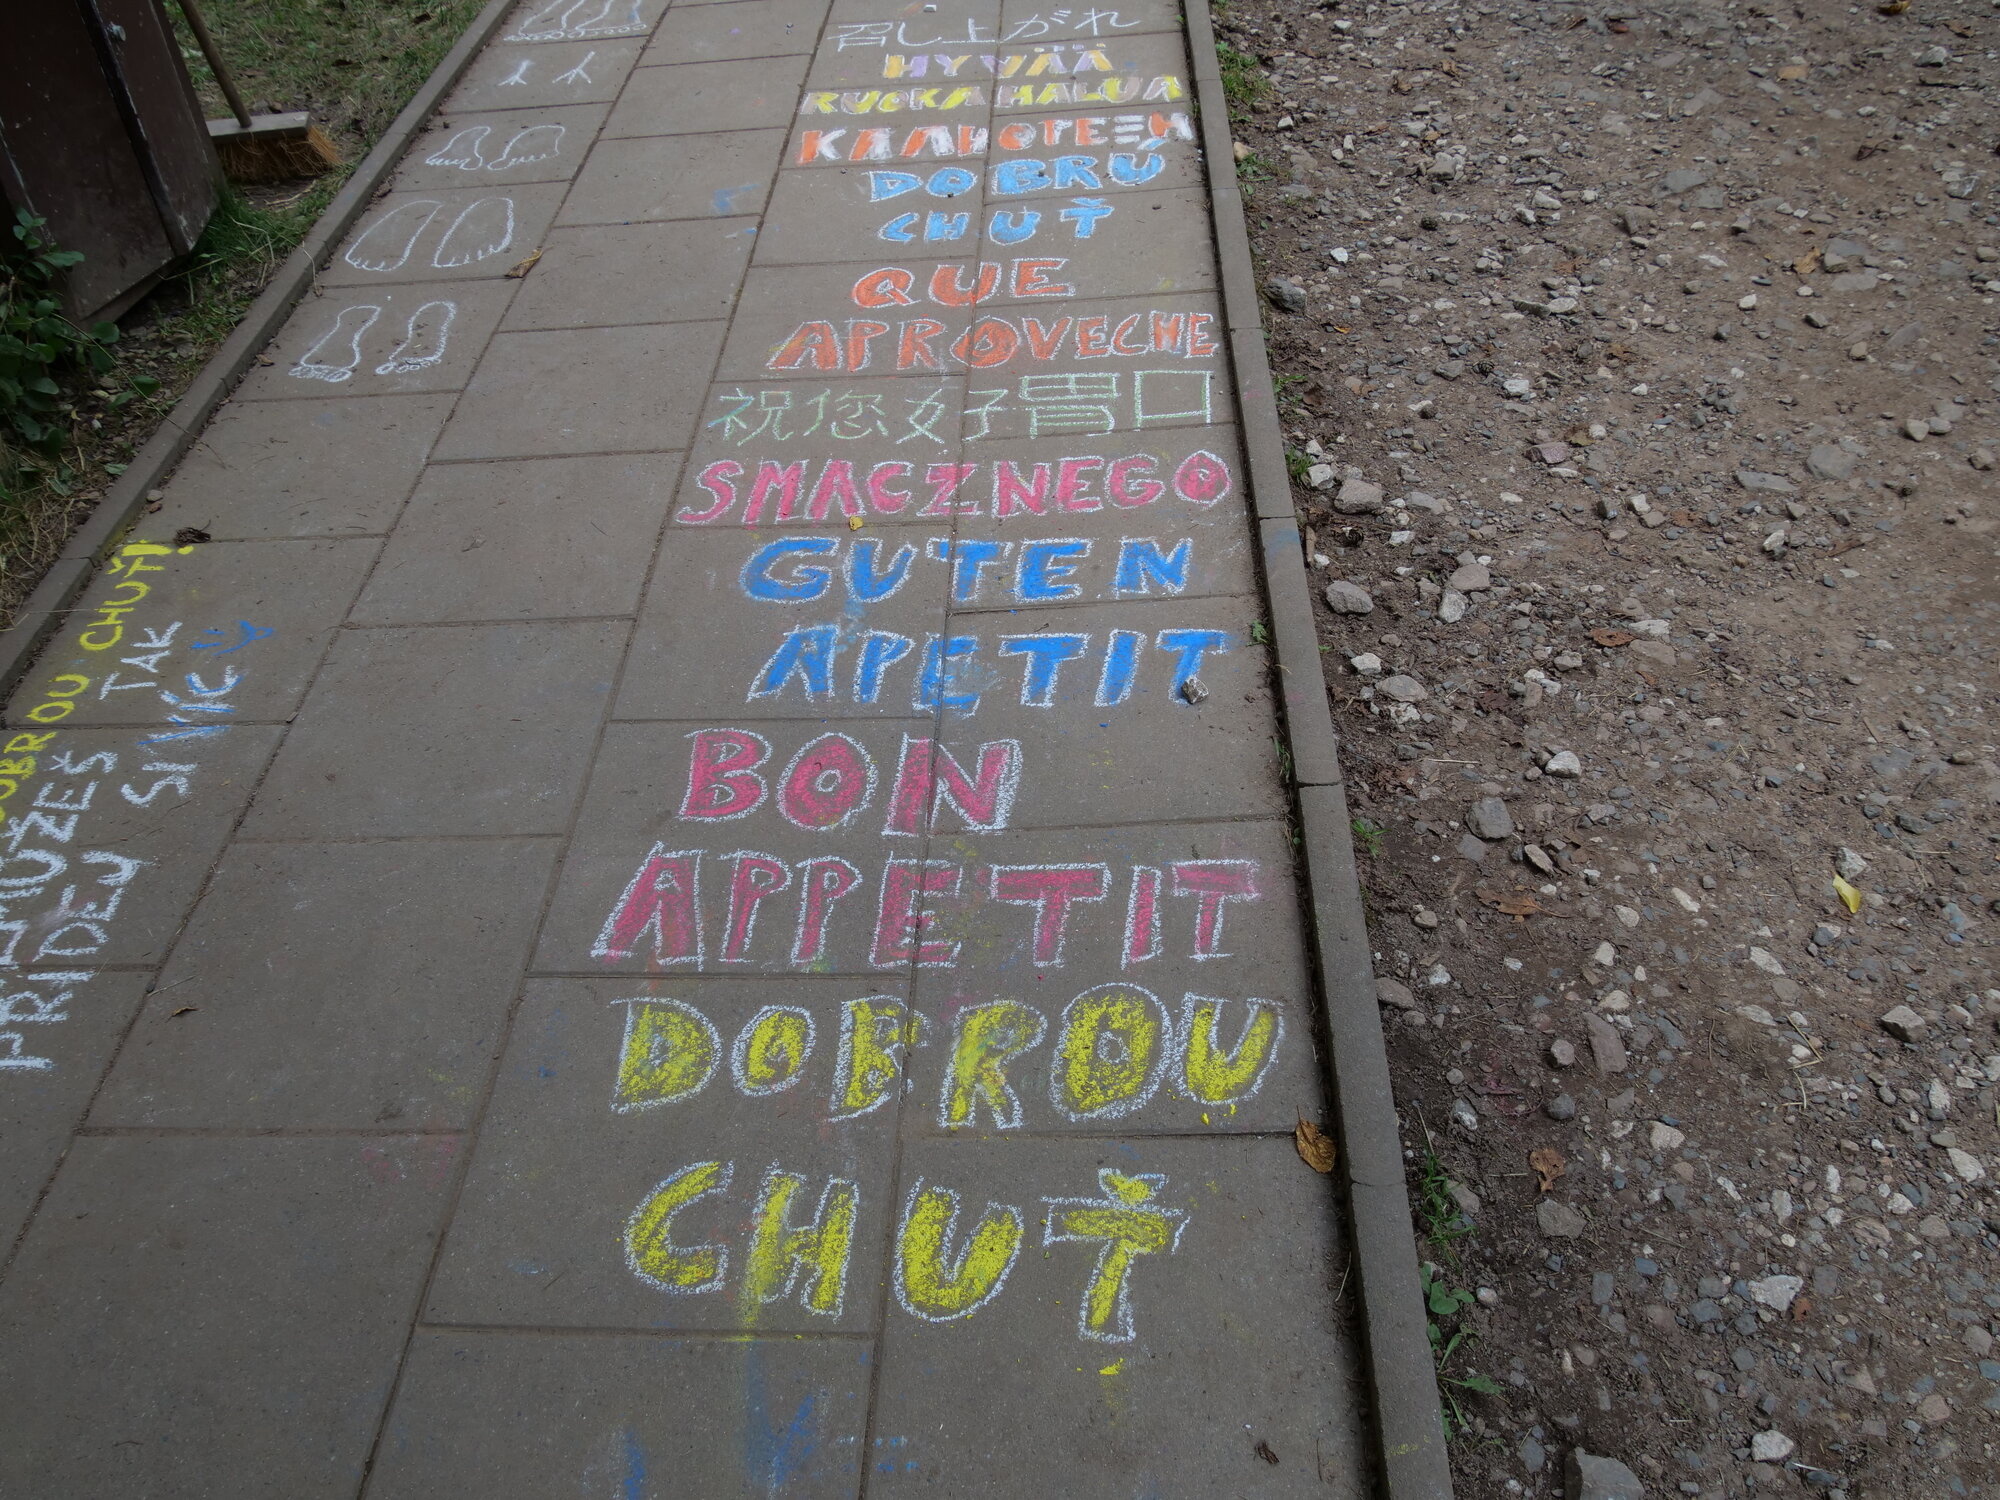 召し上がれ
HYVÄÄ
RUOKAHALUA
ΚΑΛΗ ΟΡΕΞΗ
DOBRÚ
CHUŤ
QUE
APROVECHE
祝您好胃口
SMACZNEGO
GUTEN
APETIT
BON
APPETIT
DOBROU
CHUŤ
DOBROU CHUŤ!
MŮŽEŠ TAK
PŘIDEJ SI VÍC